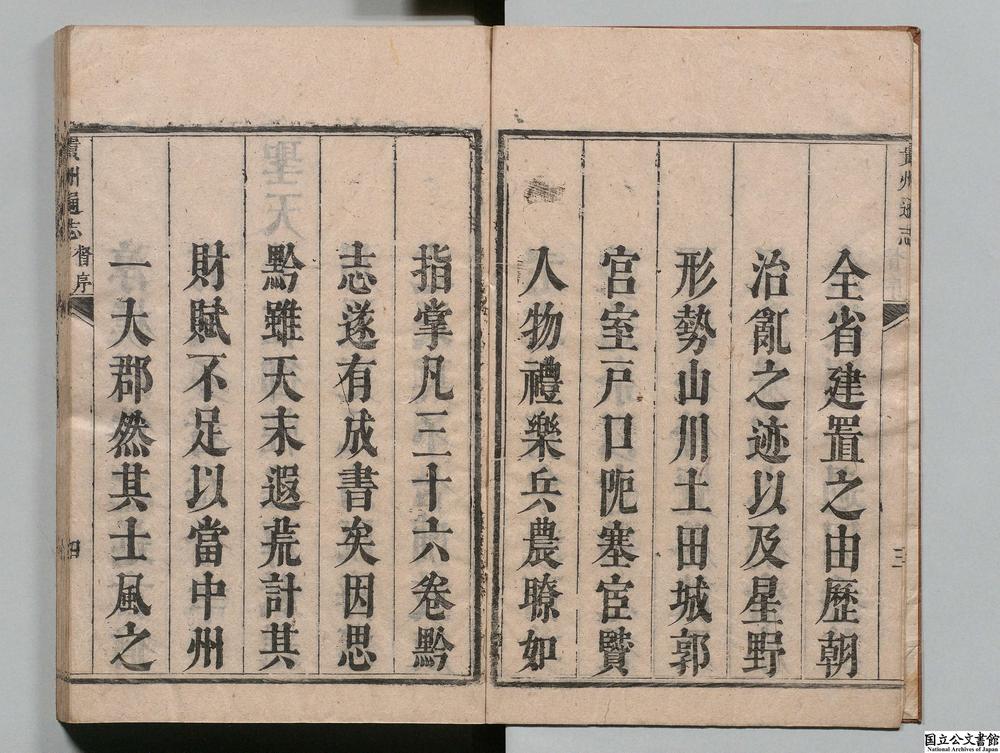 貴州通志
全省建置之由歷朝
治亂之迹以及星野
形勢山川土田城郭
宮室戶口阨塞宦賢
人物禮樂兵農瞭如
三
指掌凡三十六卷黔
志遂有成書矣因思
黔雖天末遐荒計其
財賦不足以當中州
一大郡然其士風之
貴州通志
序
四
国立公文書館
National Archives of Japan